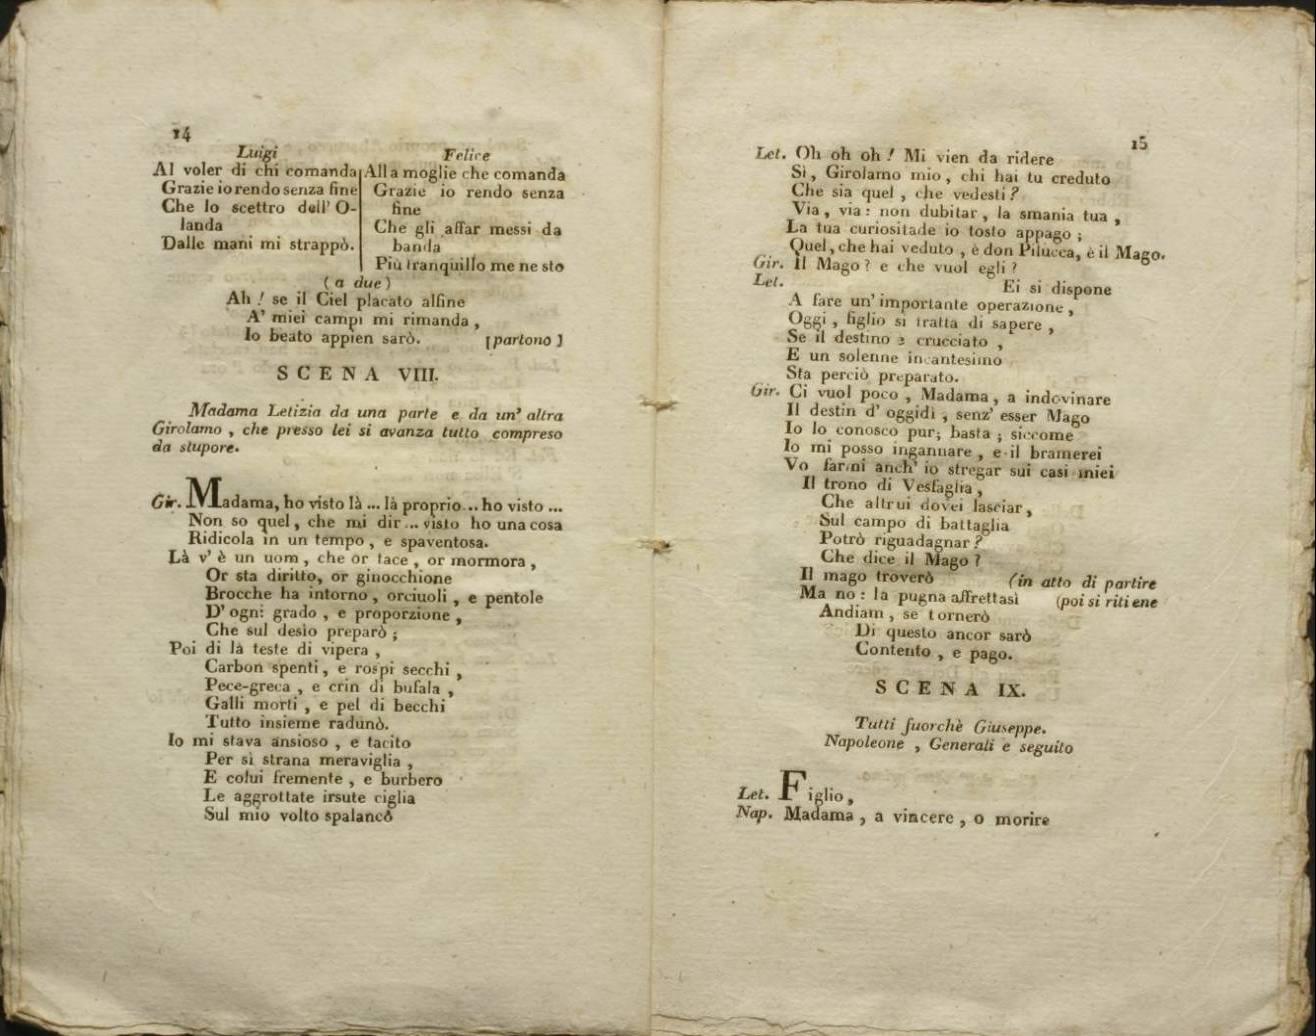 14
Luigi
Al voler di chi comanda
Grazie io rendo senza fine
Che lo scettro dell' O-
landa
Dalle mani mi strappò.
Felice
Alla moglie che comanda
Grazie io rendo senza
fine
Che gli affar messi da
banda
Più tranquillo me ne sto
( a due )
Ah ! se il Ciel placato alfine
A' miei campi mi rimanda ,
Io beato appien sarò. [partono ]
SCENA VIII.
Madama Letizia da una parte e da un' altra
Girolamo , che presso lei si avanza tutto compreso
da stupore.
Gir. Madama, ho visto là ... là proprio... ho visto ...
Non so quel , che mi dir ... visto ho una cosa
Ridicola in un tempo , e spaventosa.
Là v' è un uom , che or tace , or mormora ,
Or sta diritto, or ginocchione
Brocche ha intorno , orciuoli , e pentole
D' ogni grado , e proporzione ,
Che sul desìo preparò ;
Poi di là teste di vipera ,
Carbon spenti , e rospi secchi ,
Pece-greca , e crin di bufala ,
Galli morti , e pel di becchi
Tutto insieme radunò.
Io mi stava ansioso , e tacito
Per sì strana meraviglia ,
E colui fremente , e burbero
Le aggrottate irsute ciglia
Sul mio volto spalancò
15
Let. Oh oh oh ! Mi vien da ridere
Sì , Girolamo mio , chi hai tu creduto
Che sia quel , che vedesti ?
Via , via : non dubitar , la smania tua ,
La tua curiositade io tosto appago ;
Quel, che hai veduto , è don Pilucca, è il Mago.
Gir. Il Mago ? e che vuol egli ?
Let. Ei si dispone
A fare un' importante operazione ,
Oggi , figlio si tratta di sapere ,
Se il destino è crucciato ,
E un solenne incantesimo
Sta perciò preparato.
Gir. Ci vuol poco , Madama , a indovinare
Il destin d' oggidì , senz' esser Mago
Io lo conosco pur; basta ; siccome
Io mi posso ingannare , e il bramerei
Vo farmi anch' io stregar sui casi miei
Il trono di Vesfaglia ,
Che altrui dovei lasciar ,
Sul campo di battaglia
Potrò riguadagnar ?
Che dice il Mago ?
Il mago troverò (in atto di partire
Ma no : la pugna affrettasi (poi si ritiene
Andiam , se tornerò
Di questo ancor sarò
Contento , e pago.
SCENA IX.
Tutti fuorchè Giuseppe.
Napoleone , Generali e seguito
Let. Figlio ,
Nap. Madama , a vincere , o morire